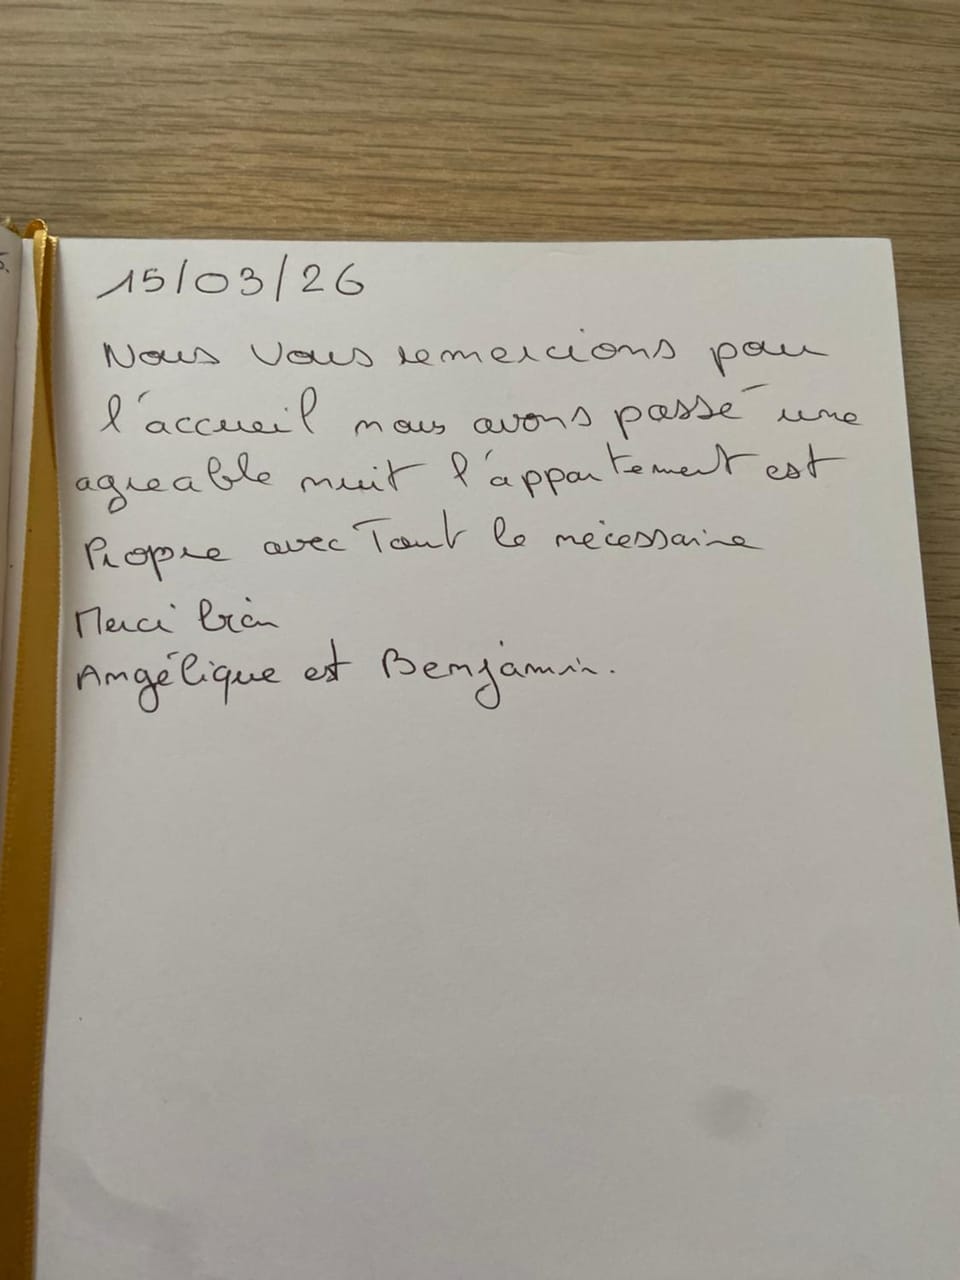 15/03/26
Nous Vous remercions pour
l'accueil nous avons passé une
agreable nuit l'appartement est
Propre avec Tout le nécessaire
Merci bien
Angélique est Benjamin.